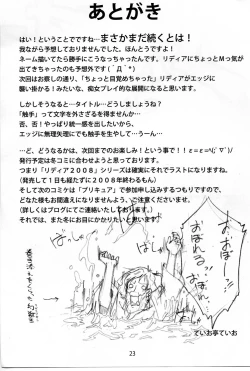 あとがき
はい！ということでですね…まさかまだ続くとは！
我ながら予想しておりませんでした。ほんとうですよ！
ネーム描いてたら勝手にこうなっちゃったんです。リディアにちょっとMっ気が
出てきちゃったのも予想外です（´Д｀*）
次回はお察しの通り、「ちょっと目覚めちゃった」リディアがエッジに
襲い掛かる！みたいな、痴女プレイ的な展開になると思います。
しかしそうなると…タイトル…どうしましょうね？
「触手」って文字を外さざるを得ませんか…
否、否！やっぱり統一感を出したいから、
エッジに無理矢理にでも触手を生やして…うーん…
…と、どうなるかは、次回までのお楽しみ！という事で！！
発行予定は冬コミに合わせようと思っております。
つまり「リディア２００８」シリーズは確実にそれでラストになりますね。
（発売して１日も経たずに２００８年終わるもん）
そして次のコミケは「プリキュア」で参加申し込みするつもりですので、
どなた様もお間違えになりませんよう、ご注意くださいませ。
（詳しくはブログにてご連絡いたしております。）
それでは、また冬にお目にかかりたいと思います！
ていお亭ていお
23